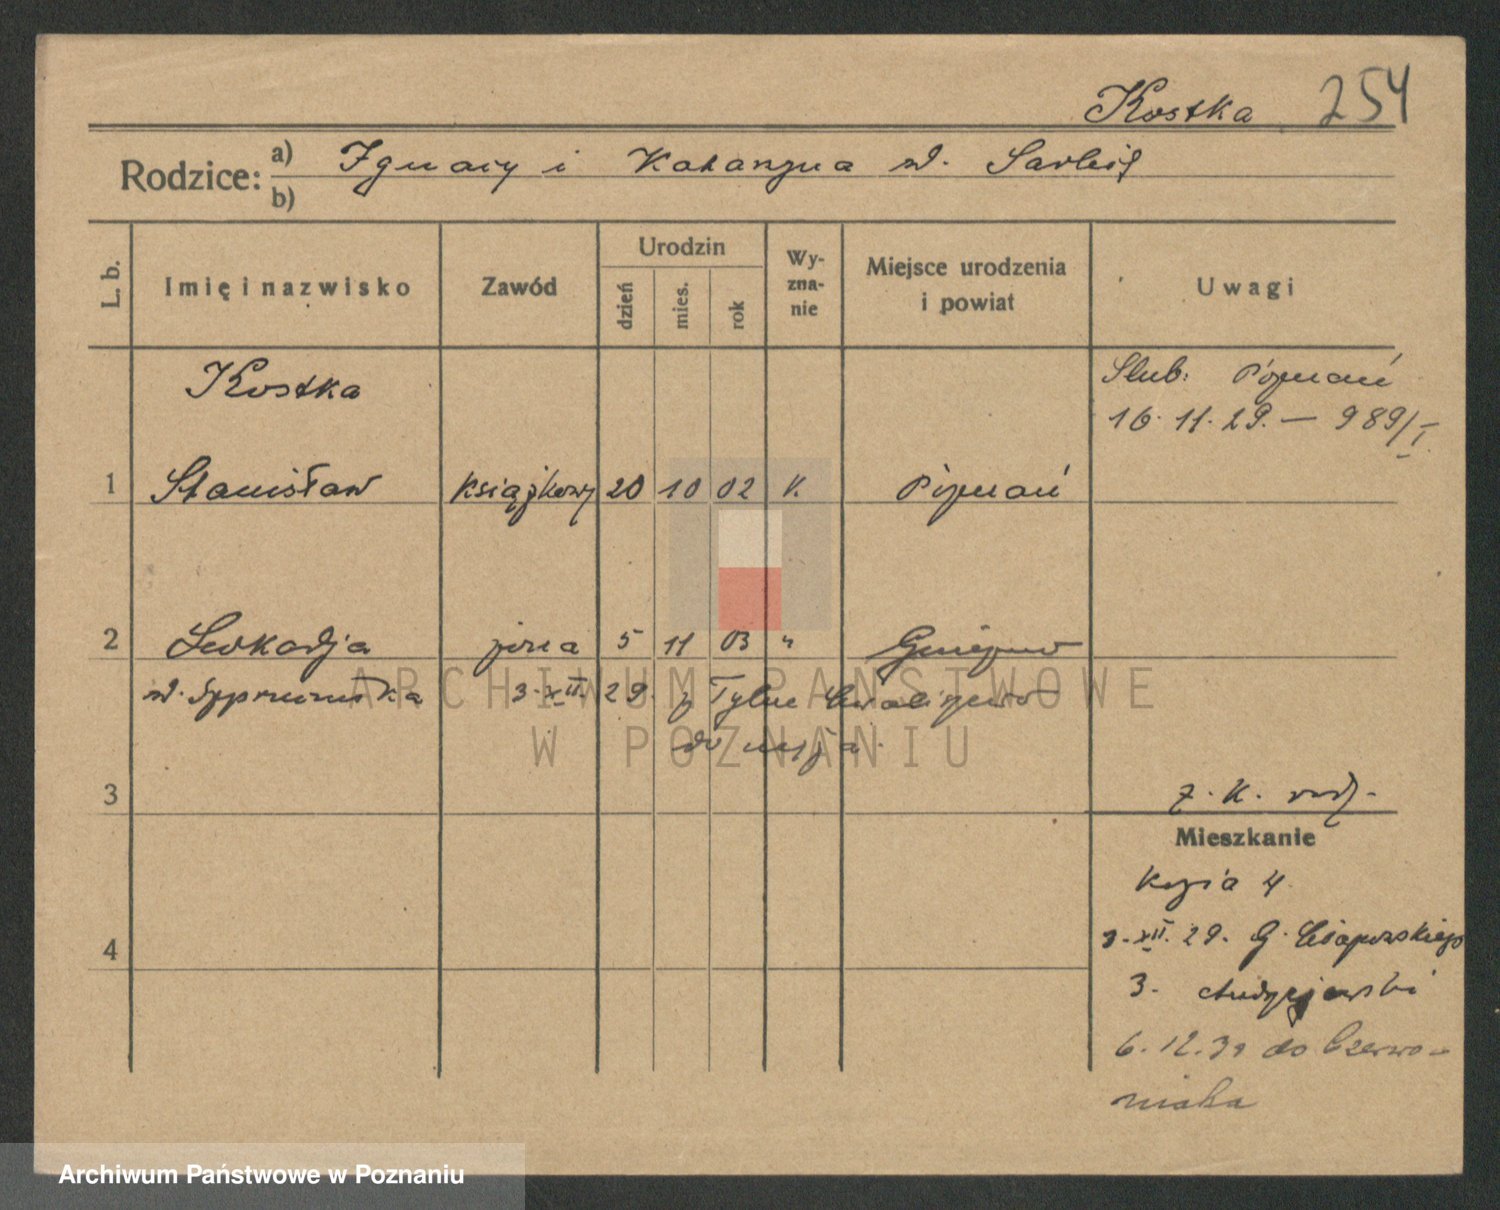 Kostka 254
Rodzice: a) Ignacy i Katarzyna d. Sarbik
b)
L. b. Imię i nazwisko Zawód Urodzin dzień mies. rok Wyznanie Miejsce urodzenia i powiat Uwagi
Kostka Ślub: Poznań
16. 11. 29. — 989/I.
1 Stanisław książkowy 20 10 02 K. Poznań
2 Leokadja żona 5 11 03 " Gniezno
d. 3. XII. 29. z Tylne
do męża.
3 ż. K. rodz.
Mieszkanie
Kozia 4.
3. XII. 29. G.
4 3. Andrzejewski
6. 12. 30 do Czerwo-
naka
ARCHIWUM PAŃSTWOWE
W POZNANIU
Archiwum Państwowe w Poznaniu